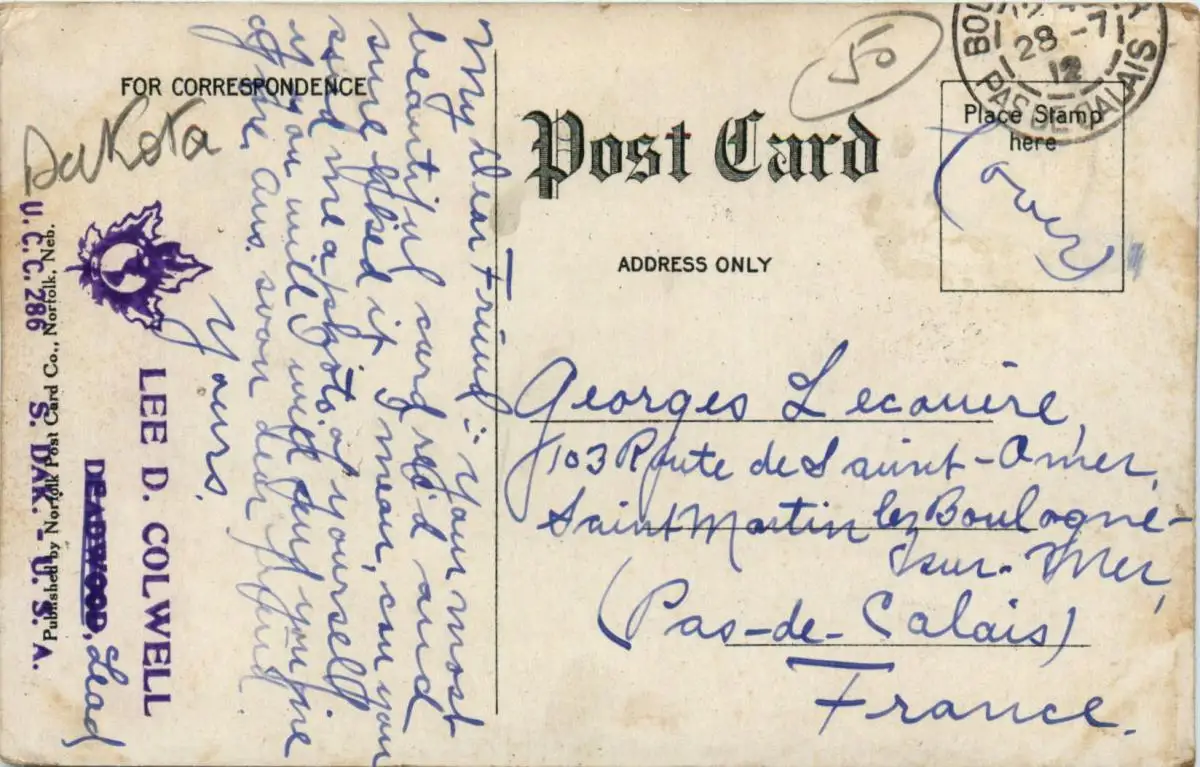 FOR CORRESPONDENCE
Dakota
My Dear Friend:- Your most
beautiful card rec'd and
sure liked it I mean, can you
send me a photo of yourself
if you will will send you fine
of me Ans. soon dear friend
Yours.
LEE D. COLWELL
DEADWOOD, Lead
S. DAK. - U.S.A.
U.C.C. 286
Published by Norfolk Post Card Co., Norfolk, Neb.
Post Card
55
BOU
28 -7
12
PAS DE CALAIS
Place Stamp
here
(over)
ADDRESS ONLY
Georges Lecouire,
103 Route de Saint-Omer,
Saint Martin lez Boulogne-
sur-Mer,
(Pas-de-Calais)
France.